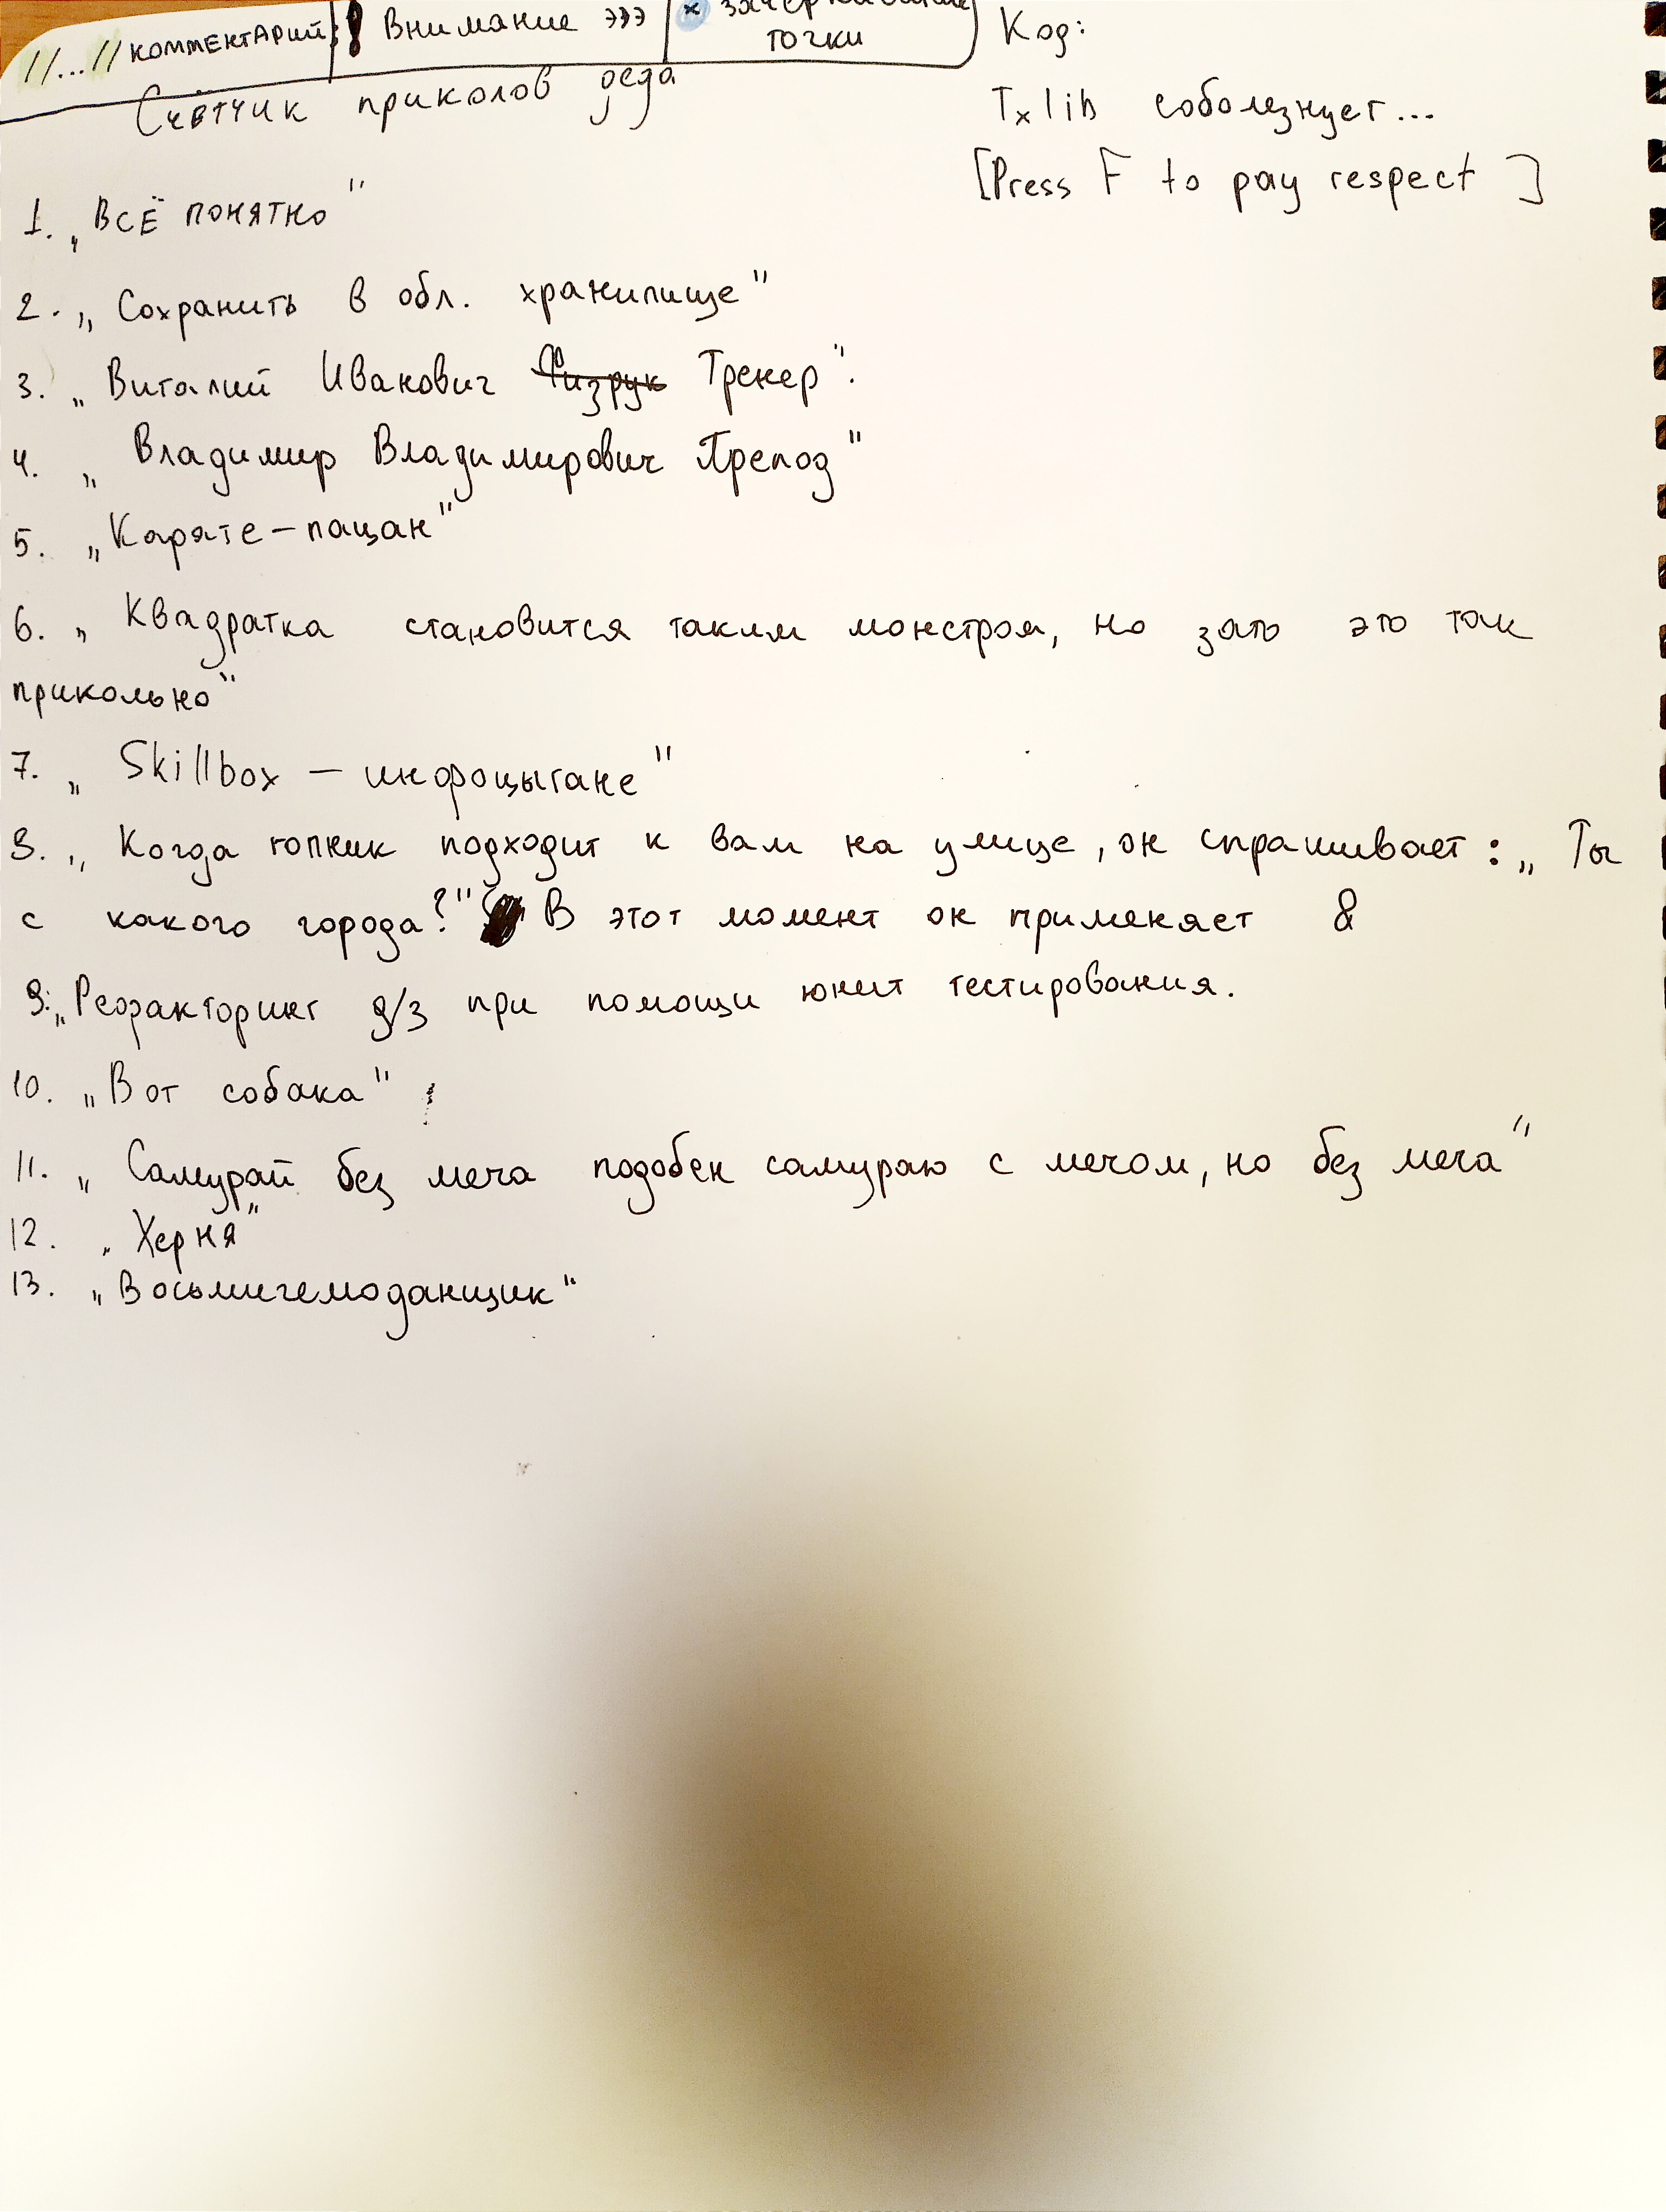 //...// КОММЕНТАРИЙ ! Внимание эээ * зачёркивание
точки
Код:
Счётчик приколов деда
TxLib соболезнует...
[Press F to pay respect ]
1. „ВСЁ ПОНЯТНО"
2. „Сохранить в обл. хранилище"
3. „Виталий Иванович Физрук Тренер".
4. „Владимир Владимирович Препод"
5. „Карате-пацан"
6. „Квадратка становится таким монстром, но зато это так
прикольно"
7. „Skillbox — инфоцыгане"
8. „Когда гопник подходит к вам на улице, он спрашивает: „Ты
с какого города?" В этот момент он применяет &
9. „Рефакторинг д/з при помощи юнит тестирования.
10. „Вот собака"
11. „Самурай без меча подобен самураю с мечом, но без меча"
12. „Херня"
13. „Восьмичемоданщик"